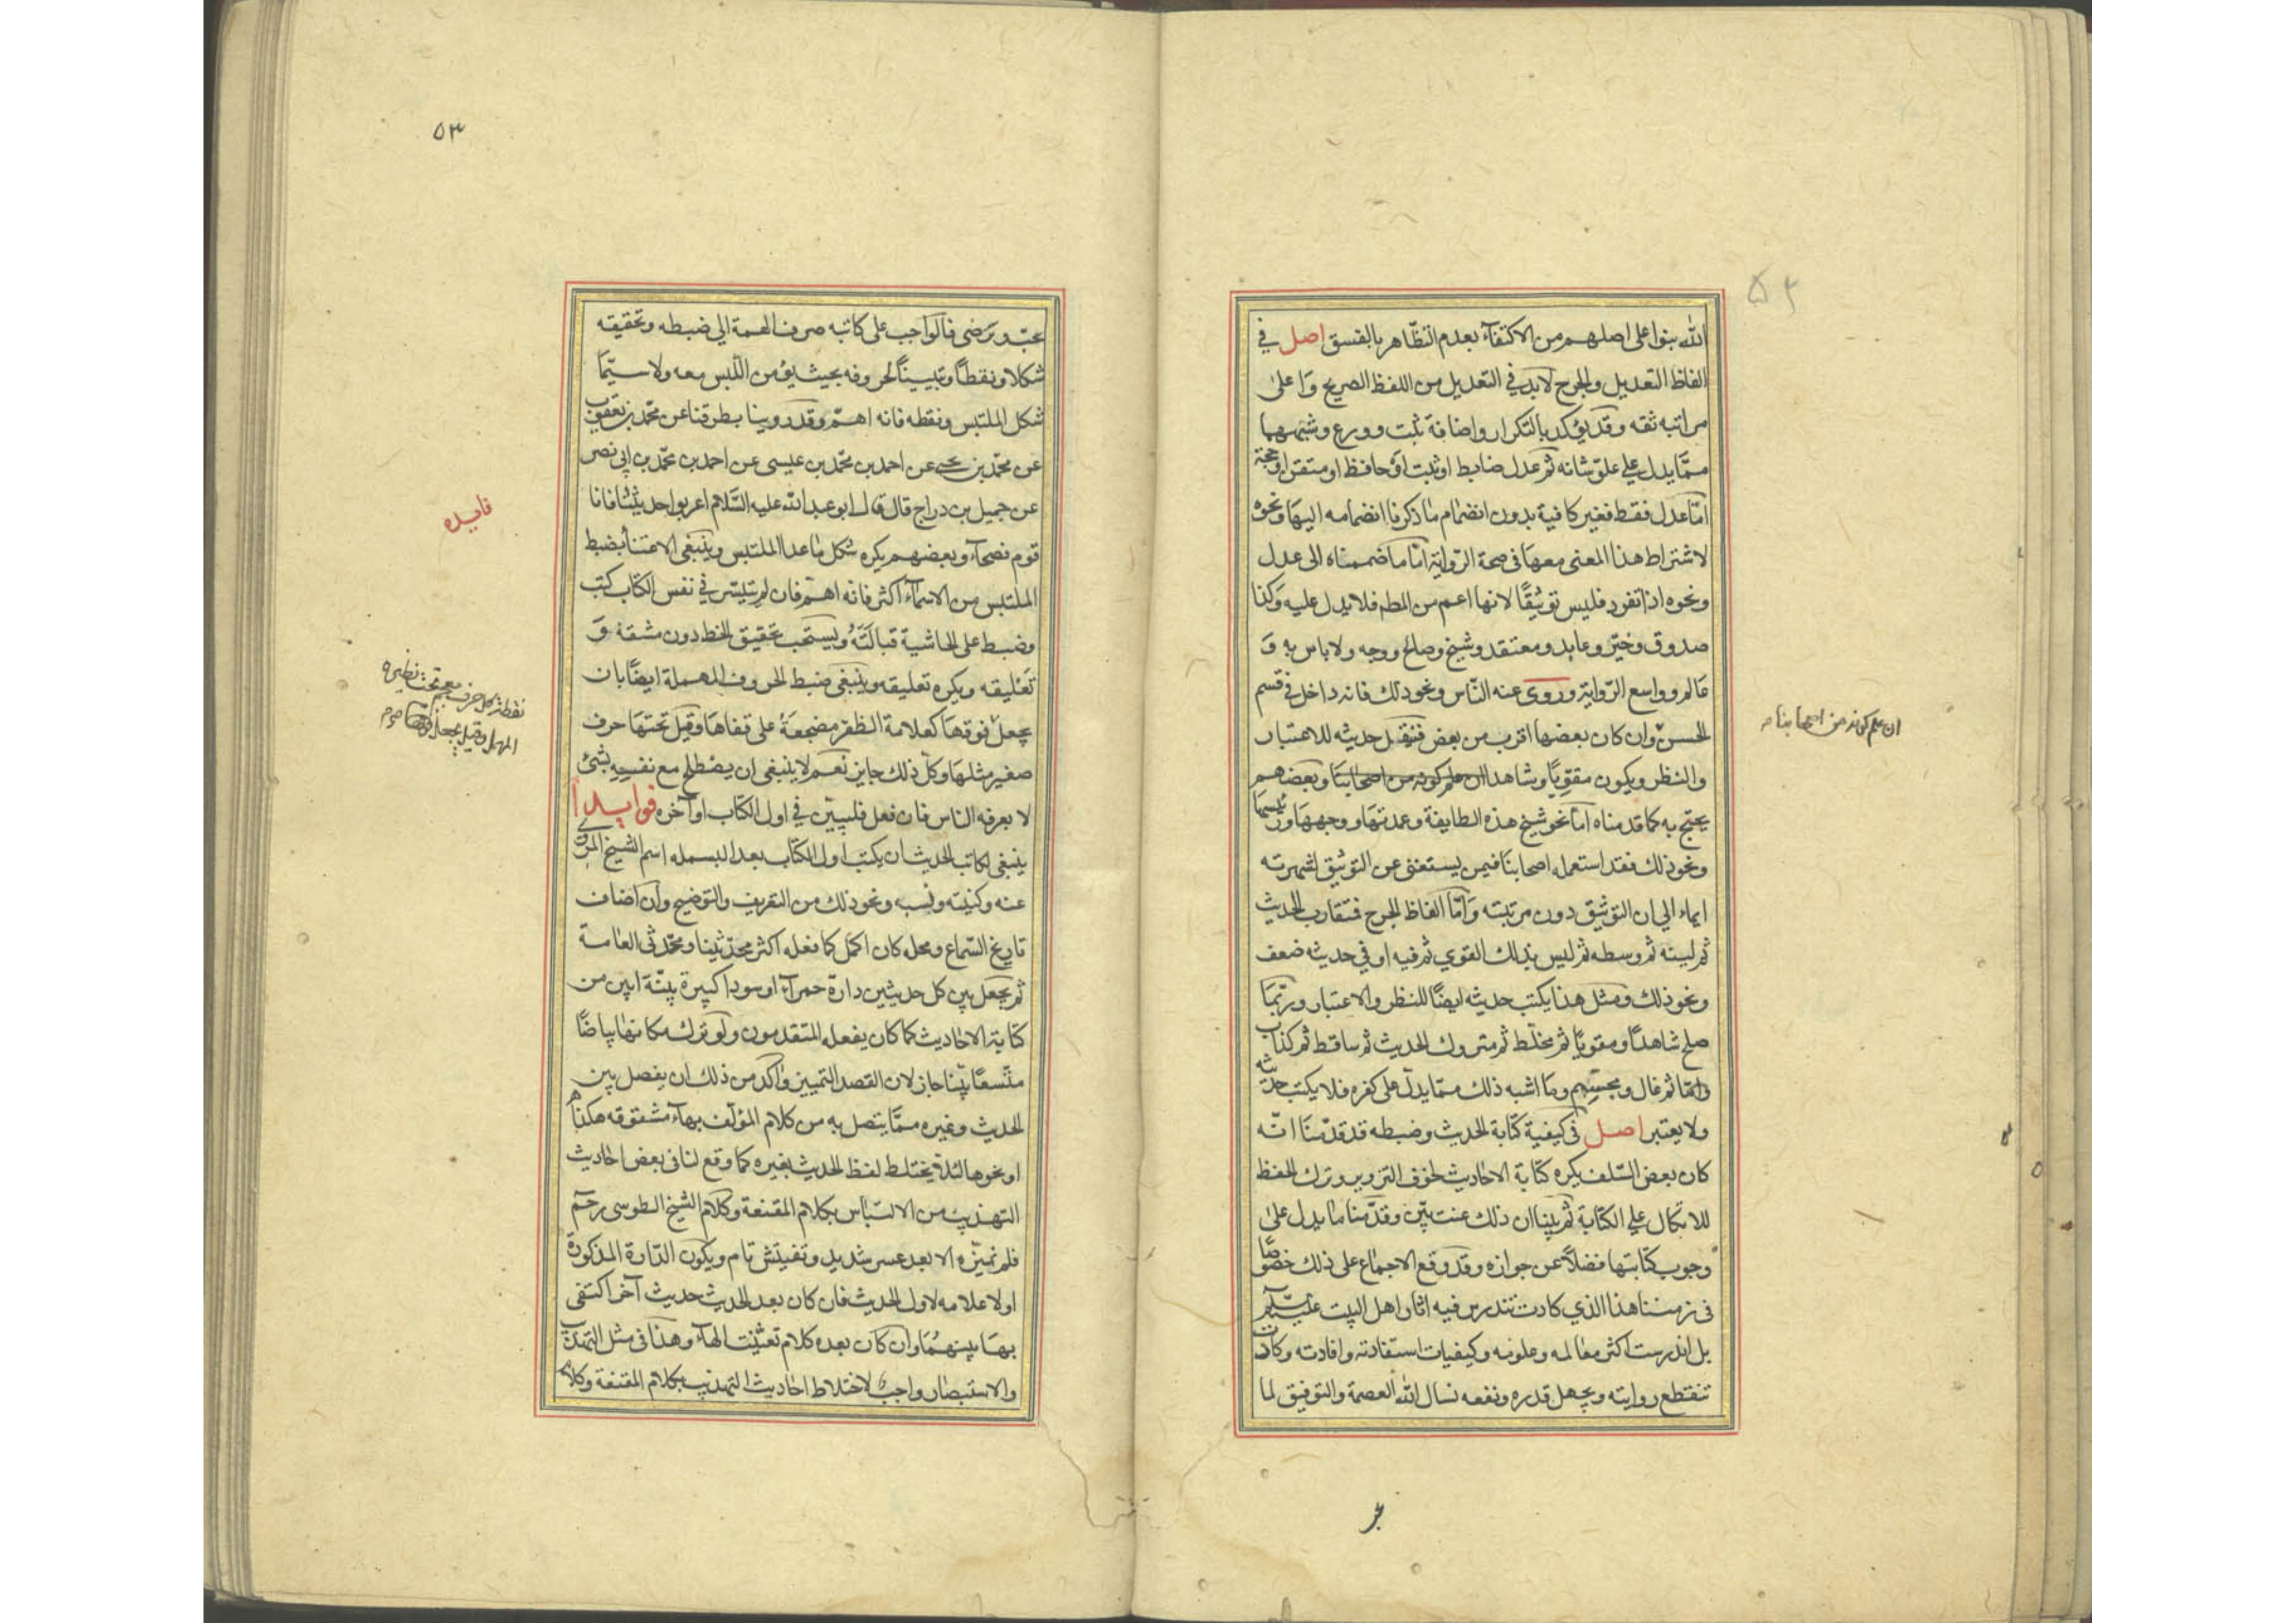 الله بنوا على اصلهم من الاكتفآء بعدم التظاهر بالفسق اصل في
الفاظ التعديل والجرح لابد في التعديل من اللفظ الصريح وَاعلىٰ
مراتبه ثقه وقد يؤكد بالتكرار واضافة ثبت وورع وشبههما
ممَّا يدل على علوّ شانه ثم عدل ضابط او ثبت او حافظ او متقن او حجة
امّا عدل فقط فغير كافية بدون انضمام ما ذكرنا انضمامه اليهَا ونحوه
لاشتراط هذا المعنى معهَا فى صحة الرّواية امّا ما ضممناه الى عدل
ونحوه اذا تفرد فليس توثيقًا لانها اعم من المط فلا يدل عليه وَكذا
صدوق وخيّر وعابد ومعتقد وشيخ وصالح ووجه ولا باس به وَ
عالم وواسع الرّواية وروى عنه النّاس ونحو ذلك فانه داخل فى قسم
الحسن وان كان بعضها اقرب من بعض فنقبل حديثه للاعتبار
والنظر ويكون مقويًا وشاهدا ان علم كونه من اصحابنَا وبعضهم
يحتج به كما قدمناه امّا نحو شيخ هذه الطايفة وعمدتهَا ووجههَا ورئيسهَا
ونحو ذلك فقد استعمله اصحابنَا فيمن يستغنى عن التوثيق لشهرته
ايماء الي ان التوثيق دون مرتبته وَامّا الفاظ الجرح فتقارب الحديث
ثم لينه ثم وسطه ثم ليس بذلك القوي ثم فيه او في حديثه ضعف
ونحو ذلك ومثل هذا يكتب حديثه ايضًا للنظر والاعتبار وربّمَا
صلح شاهدًا ومقويًا ثم مخلّط ثم متروك الحديث ثم ساقط ثم كذاب
وامّا ثم غال ومجسّم وما اشبه ذلك ممّا يدلّ على كفره فلا يكتب حديثه
ولا يعتبر اصل فى كيفية كتابة الحديث وضبطه قد قدّمنَا انّه
كان بعض السّلف يكره كتابة الاحاديث لخوف التزوير وترك الحفظ
للاتكال علي الكتابة ثم بينا ان ذلك عنت بيّن وقدّمنا ما يدل علىٰ
وجوب كتابتها فضلاً عن جوازه وقد وقع الاجماع على ذلك خصوصًا
فى زمننا هذا الذي كادت تندرس فيه اثار اهل البيت عليهم السلم
بل اندرست اكثر معالمه وعلومه وكيفيات استفادته وافادته وكادت
تنقطع روايته ويجهل قدره ونفعه نسال الله العصمة والتوفيق لما
ان علم كونه من اصحابنا صح
٥٣
يحبّ ويرضى فالواجب على كاتبه صرف الهمة الي ضبطه وتحقيقه
شكلا ونقطًا وتبيينًا لحروفه بحيث يؤمن اللّبس معه ولا سيّمَا
شكل الملتبس ونقطه فانه اهمّ وقد روينا بطرقنا عن محمّد بن يعقوب
عن محمّد بن يحيى عن احمد بن محمّد بن عيسى عن احمد بن محمّد بن ابي نصر
عن جميل بن دراج قال قال ابو عبد الله عليه السّلام اعربوا حديثنا فانا
قوم فصحآء وبعضهم يكره شكل ما عدا الملتبس وينبغى الاعتناء بضبط
الملتبس من الاسمآء اكثر فانه اهمّ فان لم يتيسّر في نفس الكتاب كتب
وضبط على الحاشية قبالته ويستحب تحقيق الخط دون مشقه وَ
تعليقه ويكره تعليقه وينبغى ضبط الحروف المهملة ايضًا بان
يجعل فوقهَا كعلامة الظفر مضجعة على قفاهَا وقيل تحتهَا حرف
صغير مثلهَا وكل ذلك جايز نعم لا ينبغى ان يصطلح مع نفسه بشئ
لا يعرفه الناس فان فعل فليبيّن في اول الكتاب او آخره فوايد ا
ينبغى لكاتب الحديث ان يكتب اول الكتاب بعد البسمله اسم الشيخ المروي
عنه وكنيته ونسبه ونحو ذلك من التعريف والتوضيح وان اضاف
تاريخ السّماع ومحله كان اكمل كما فعله اكثر محدّثينا ومحدّثى العامة
ثم يجعل بين كل حديثين دارة حمرآء او سودا كبيرة بيّنة ابين من
كتابة الاحاديث كما كان يفعله المتقدمون ولو ترك مكانها بياضًا
متّسعًا بيّنا جاز لان القصد التمييز واكد من ذلك ان يفصل بين
الحديث وغيره ممَّا يتصل به من كلام المؤلّف بهآء مشقوقه هكذا ه
او نحوها لئلا يختلط لفظ الحديث بغيره كما وقع لنا فى بعض احاديث
التهذيب من الالتباس بكلام المقنعة وكلام الشيخ الطوسى رحمه
فلم نميّزه الا بعد عسر شديد وتفيتش تام ويكون الدّارة المذكورة
اولا علامه لاول الحديث فان كان بعد الحديث حديث آخر اكتفى
بهَا بينهمَا وان كان بعده كلام تعيّنت الهآء وهذا فى مثل التهذيب
والاستبصار واجب لاختلاط احاديث التهذيب بكلام المقنعة وكلام
فايده